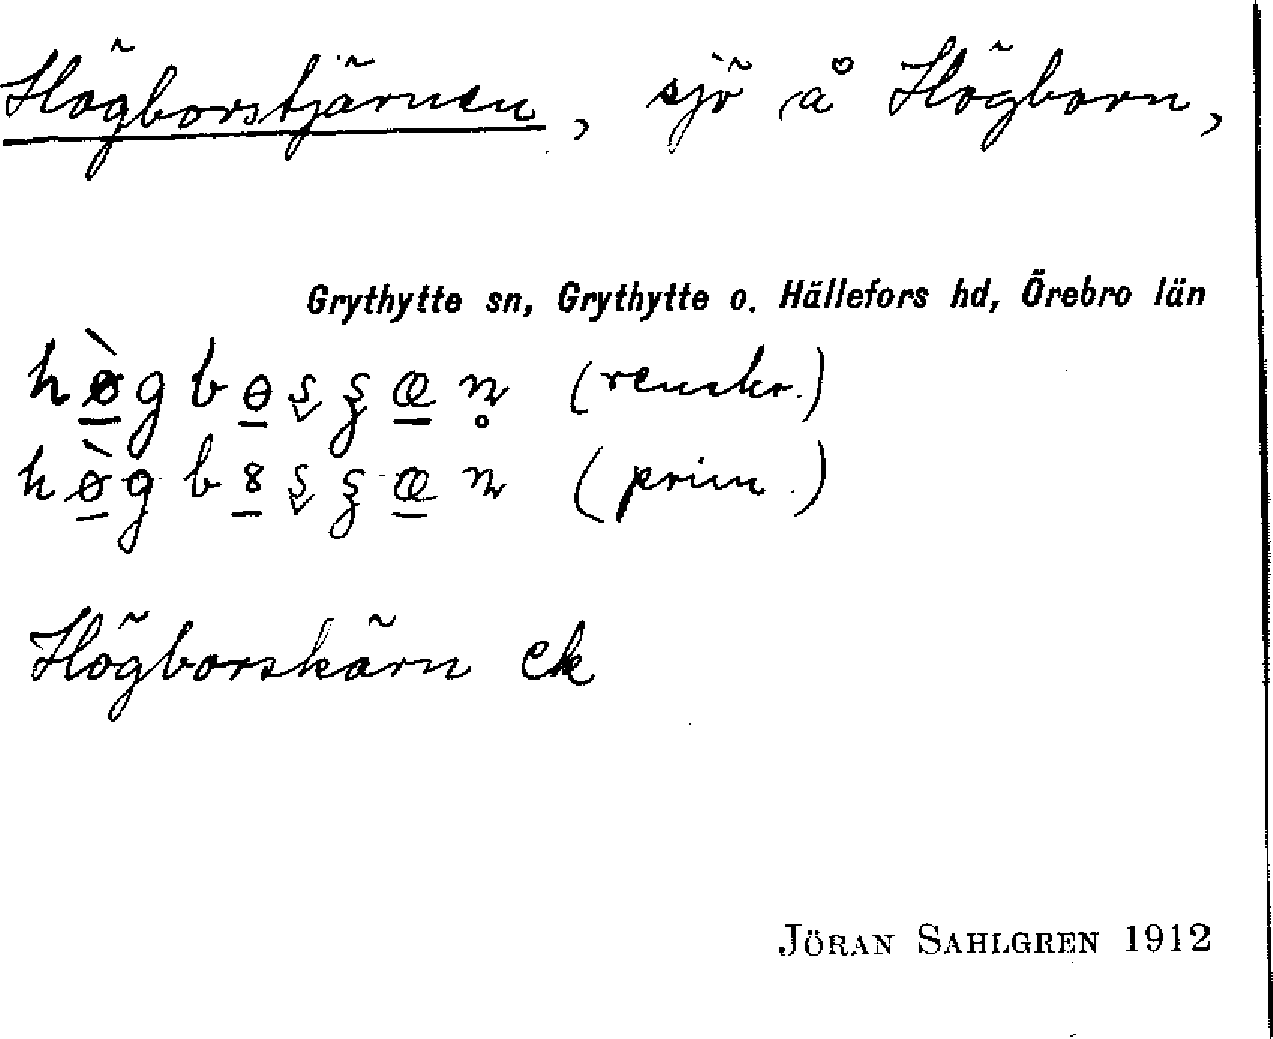 Högborstjärnen, sjö å Högborn,
Grythytte sn, Grythytte o. Hällefors hd, Örebro län
(renskr.)
(prim.)
Högborskärn ek
JÖRAN SAHLGREN 1912